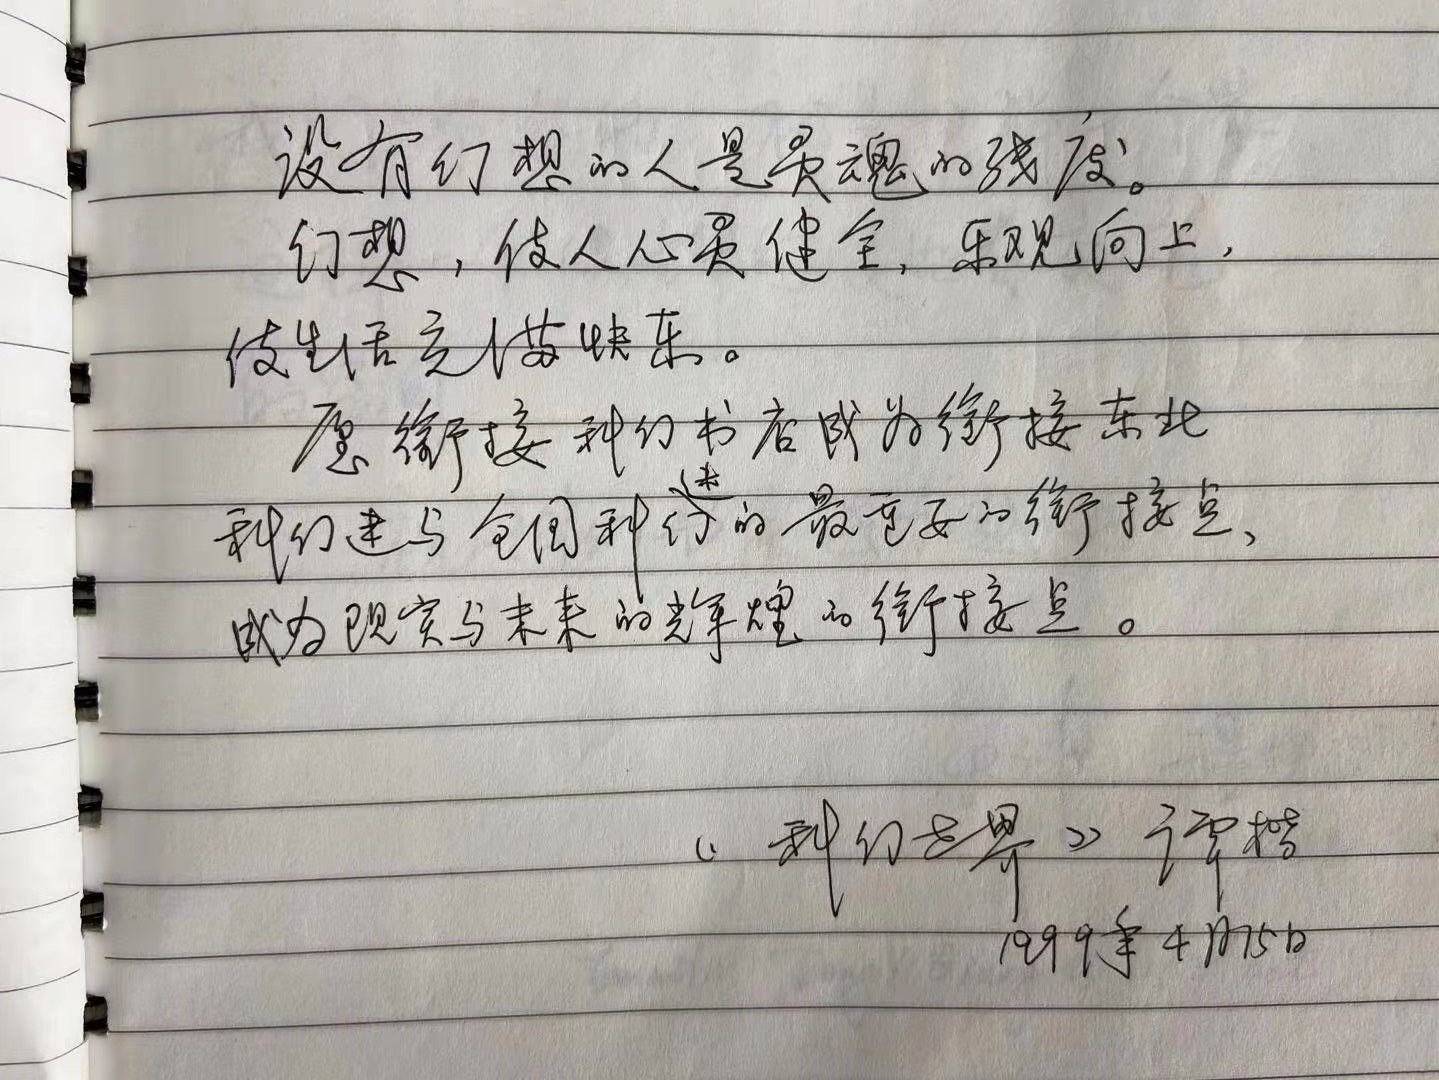 没有幻想的人是灵魂的残废。
幻想,使人心灵健全,乐观向上,
使生活充满快乐。
愿衔接科幻书店成为衔接东北
科幻迷与全国科幻迷的最重要的衔接点、
成为现实与未来的辉煌的衔接点。
《科幻世界》谭楷
1999年4月15日